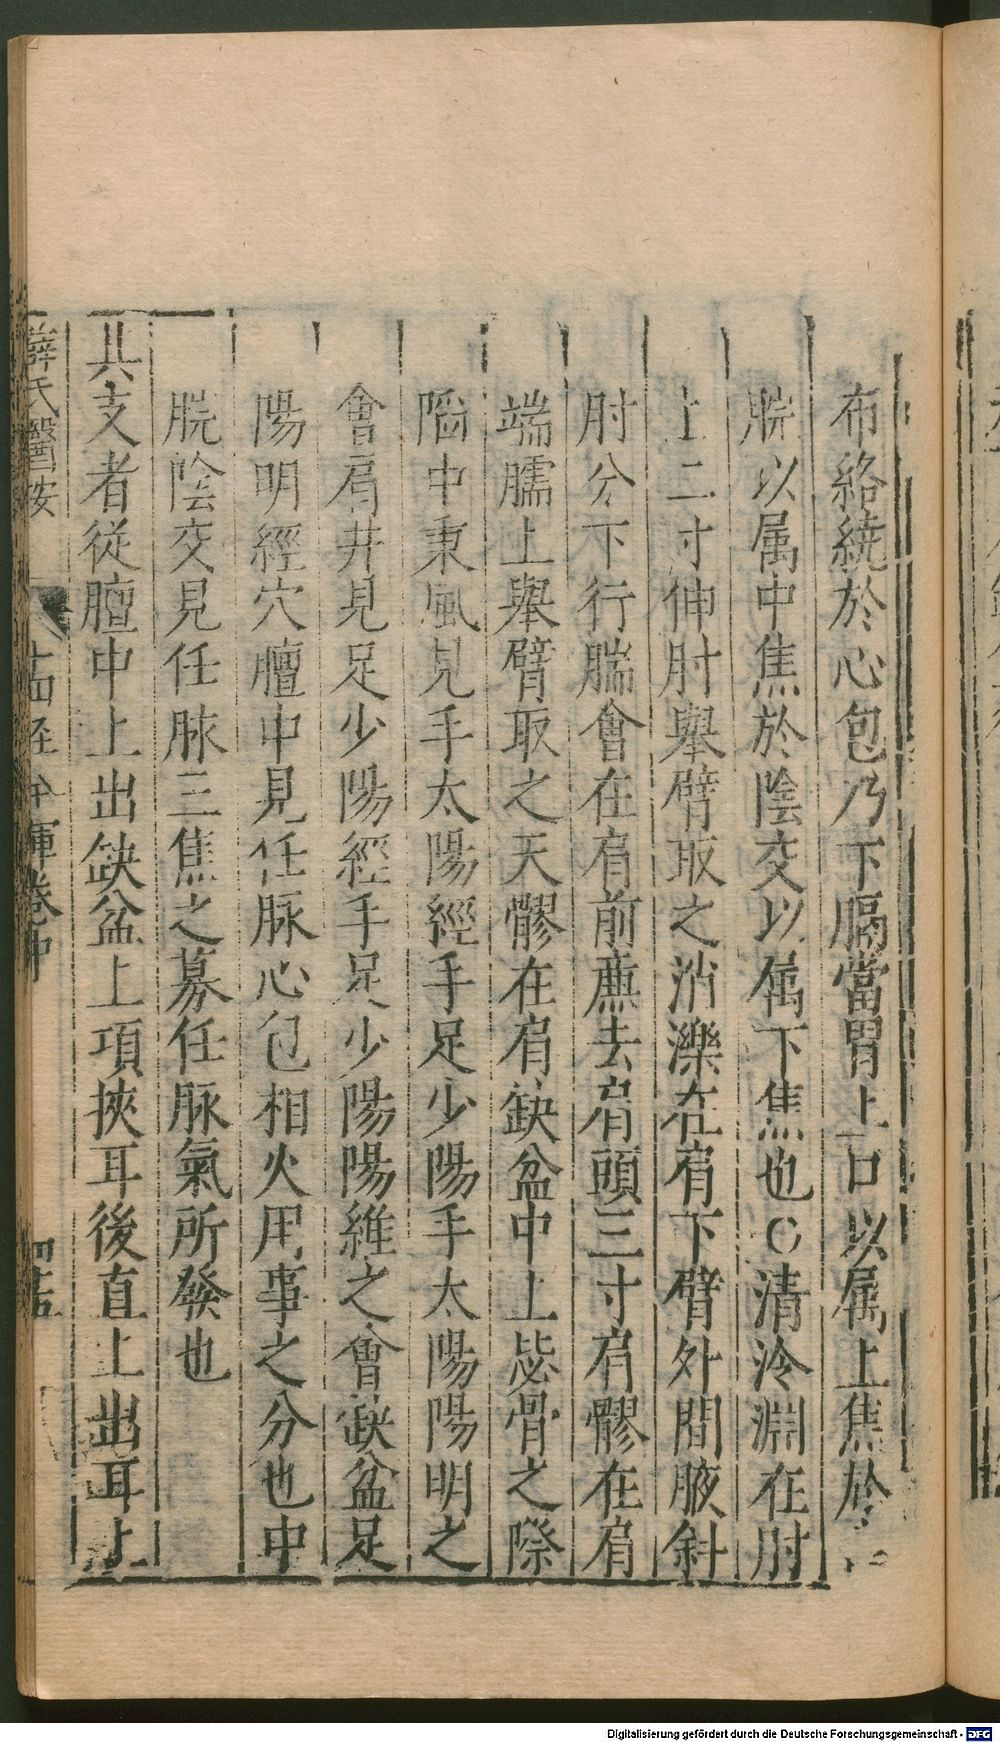 布絡繞於心包乃下膈當胃上口以属上焦於
脘以属中焦於陰交以属下焦也○清泠淵在肘
上二寸伸肘舉臂取之消濼在肩下臂外間腋斜
肘分下行臑會在肩前廉去肩頭三寸肩髎在肩
端臑上舉臂取之天髎在肩缺盆中上毖骨之際
陥中秉風見手太陽經手足少陽手太陽陽明之
會肩井見足少陽經手足少陽陽維之會缺盆足
陽明經穴膻中見任脉心包相火用事之分也中
脘陰交見任脉三焦之募任脉氣所發也
其支者從膻中上出缺盆上項挾耳後直上出耳上
薛氏醫按 十四経 揮卷中
Digitalisierung gefördert durch die Deutsche Forschungsgemeinschaft - DFG